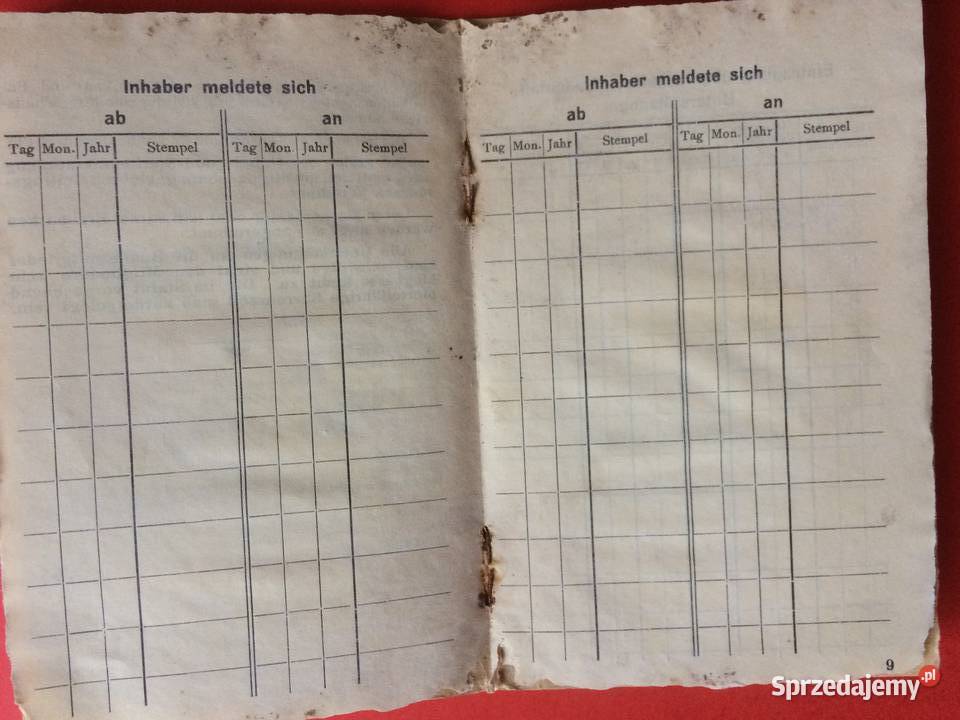 Inhaber meldete sich
ab an
Tag Mon. Jahr Stempel Tag Mon. Jahr Stempel
Inhaber meldete sich
ab an
Tag Mon. Jahr Stempel Tag Mon. Jahr Stempel
9
Sprzedajemy.pl